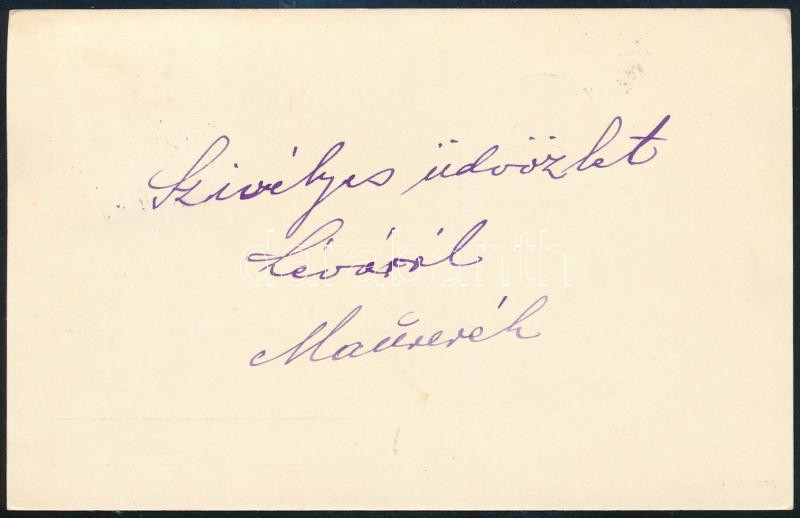 Szivélyes üdvözlet
Léváról
Maŭrerék
darabanth